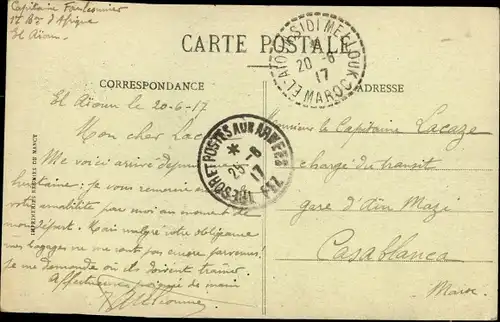 Capitaine
1er Bon d'Afrique
El Aïoun
CARTE POSTALE
EL-AIOUN-SIDI-MELLOUK
*
20 -6
17
MAROC
CORRESPONDANCE
ADRESSE
El Aïoun le 20-6-17
Mon cher Lacaze
Me voici arrivé depuis
huitaine; je vous remercie
votre amabilité par au moment de
mon départ. Mais malgré votre obligeance
mes bagages ne me sont pas encore parvenus.
je me demande où ils doivent trainer.
Affectueuse poignée de main
TRESOR ET POSTES AUX ARMEES
*
25 -6
17
FEZ
Monsieur le Capitaine Lacaze
chargé du transit
gare d'Aïn Mazi
Casablanca
Maroc
IMPRIMERIES REUNIES DE NANCY